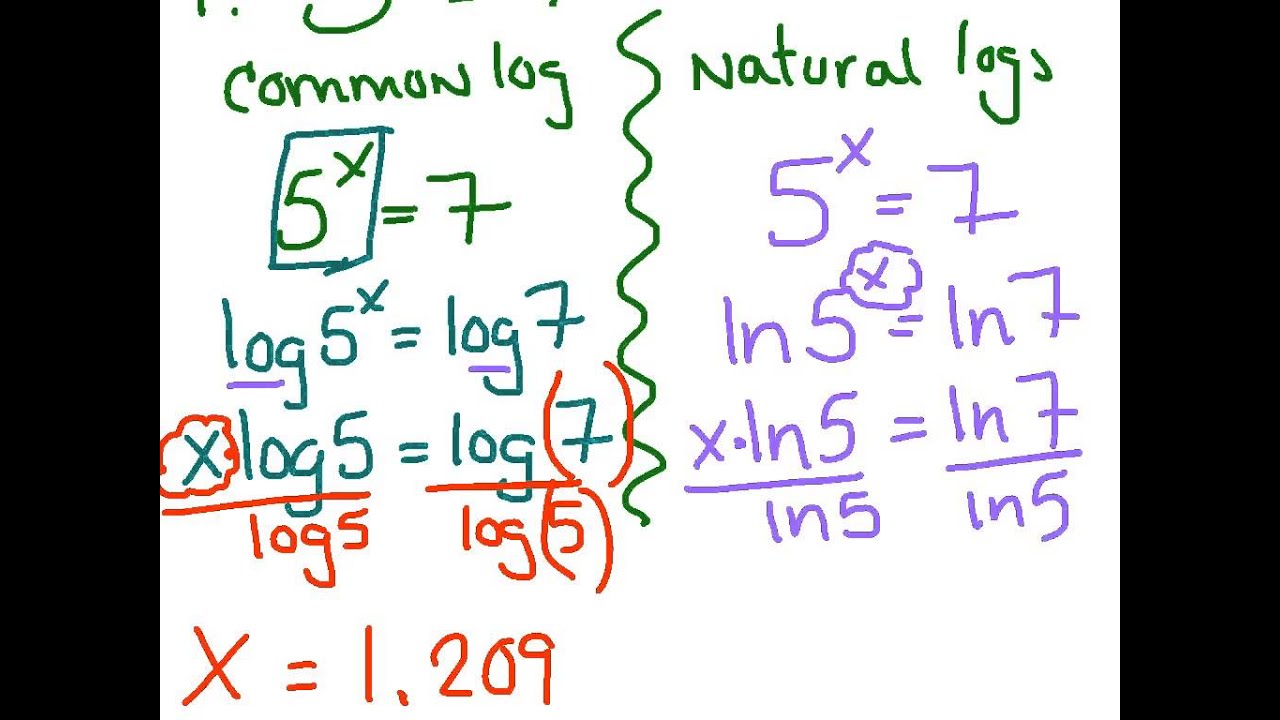 common log
5^x = 7
log 5^x = log 7
x log 5 = log(7)
log 5 log(5)
x = 1.209
Natural logs
5^x = 7
ln 5^x = ln 7
x · ln 5 = ln 7
ln 5 ln 5